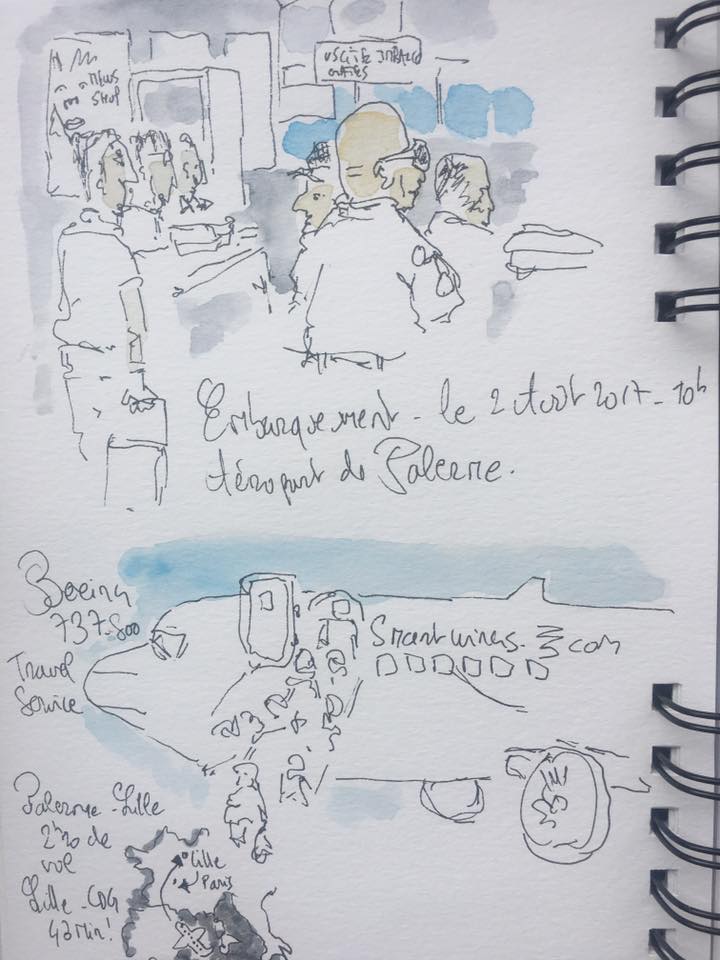 USCITE IMBARCO
GATES
Embarquement - le 2 Août 2017 - 10h
Aéroport de Palerme.
Boeing
737-800
Travel
Service
Smartwings.com
Palerme - Lille
2h20 de
vol
Lille - CDG
43 Min!
Lille
Paris